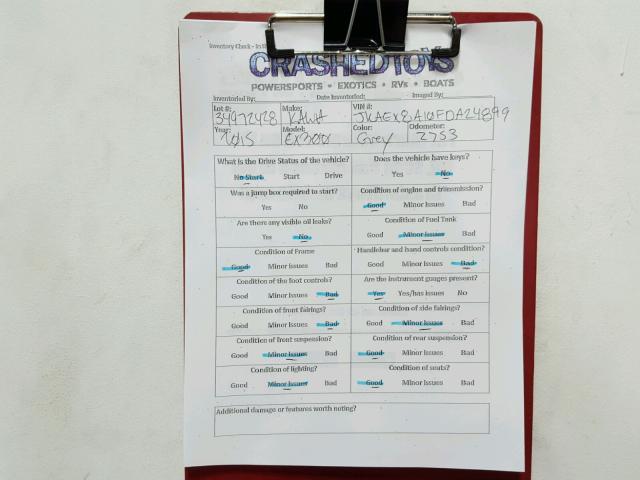 Inventory Check - In
CRASHEDTOYS
POWERSPORTS • EXOTICS • RVs • BOATS
Inventoried By: Date Inventoried: Imaged By:
Lot #: Make: VIN #:
34972428 KAWA JKAEX8A10FDA24899
Year: Model: Color: Odometer:
2015 EX300 Grey 2753
What is the Drive Status of the vehicle? Does the vehicle have keys?
No Start Start Drive Yes No
Was a jump box required to start? Condition of engine and transmission?
Yes No Good Minor Issues Bad
Are there any visible oil leaks? Condition of Fuel Tank
Yes No Good Minor Issues Bad
Condition of Frame Handlebar and hand controls condition?
Good Minor Issues Bad Good Minor Issues Bad
Condition of the foot controls? Are the instrument gauges present?
Good Minor Issues Bad Yes Yes/has Issues No
Condition of front fairings? Condition of side fairings?
Good Minor Issues Bad Good Minor Issues Bad
Condition of front suspension? Condition of rear suspension?
Good Minor Issues Bad Good Minor Issues Bad
Condition of lighting? Condition of seats?
Good Minor Issues Bad Good Minor Issues Bad
Additional damage or features worth noting?